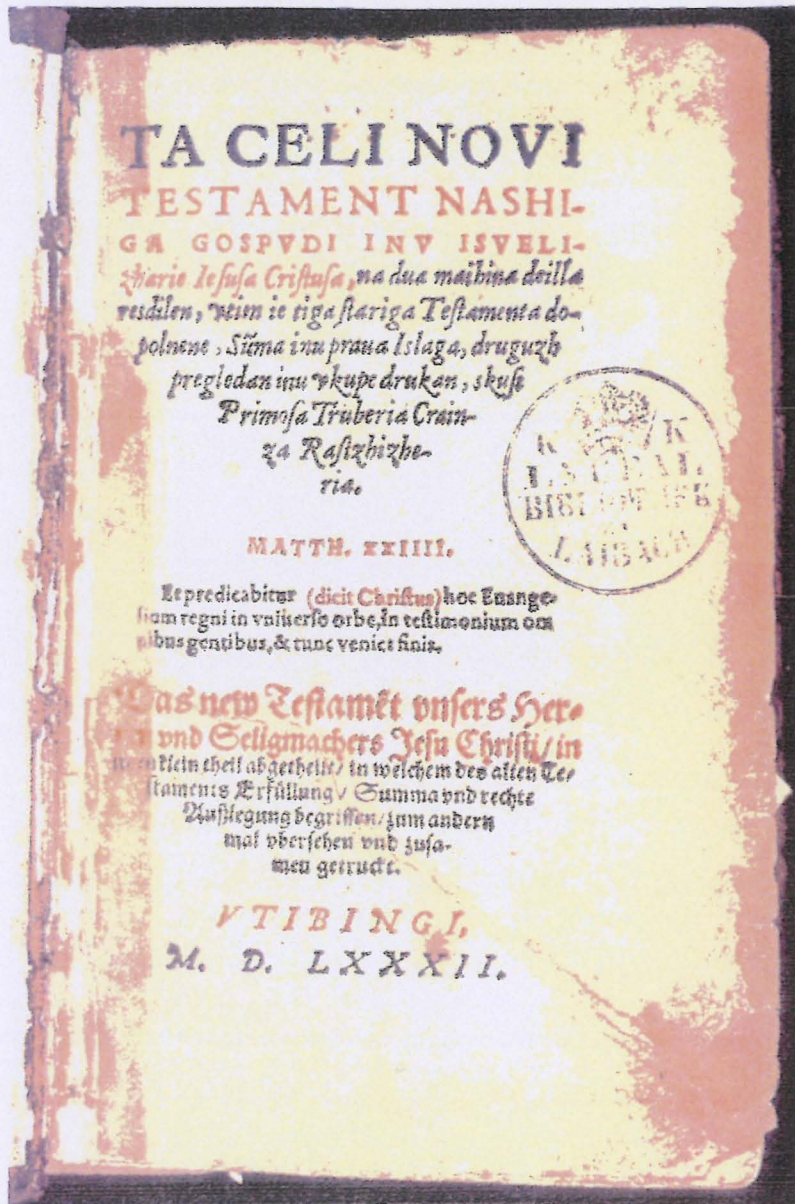 TA CELI NOVI
TESTAMENT NASHI-
GA GOSPVDI INV ISVELI-
zharie Iesusa Cristusa, na dua maihina deilla
resdilen, vtim ie tiga stariga Testamenta do-
polnene, Sũma inu praua Islaga, druguzh
pregledan inu vkupe drukan, skuse
Primosa Truberia Crain-
za Rastzhizhe-
ria.
MATTH. XXIIII.
Et predicabitur (dicit Christus) hoc Euange-
lium regni in vniuerso orbe, In testimonium om
nibus gentibus, & tunc veniet finis.
Das new Testamẽt vnsers Her-
vnd Seligmachers Jesu Christi/ in
klein theil abgetheilt/ in welchem des alten Te-
staments Erfüllung/ Summa vnd rechte
Außlegung begriffen/ zum andern
mal vbersehen vnd zusa-
men getruckt.
VTIBINGI,
M. D. LXXXII.
K K
BIBLIOTHEK
LAIBACH